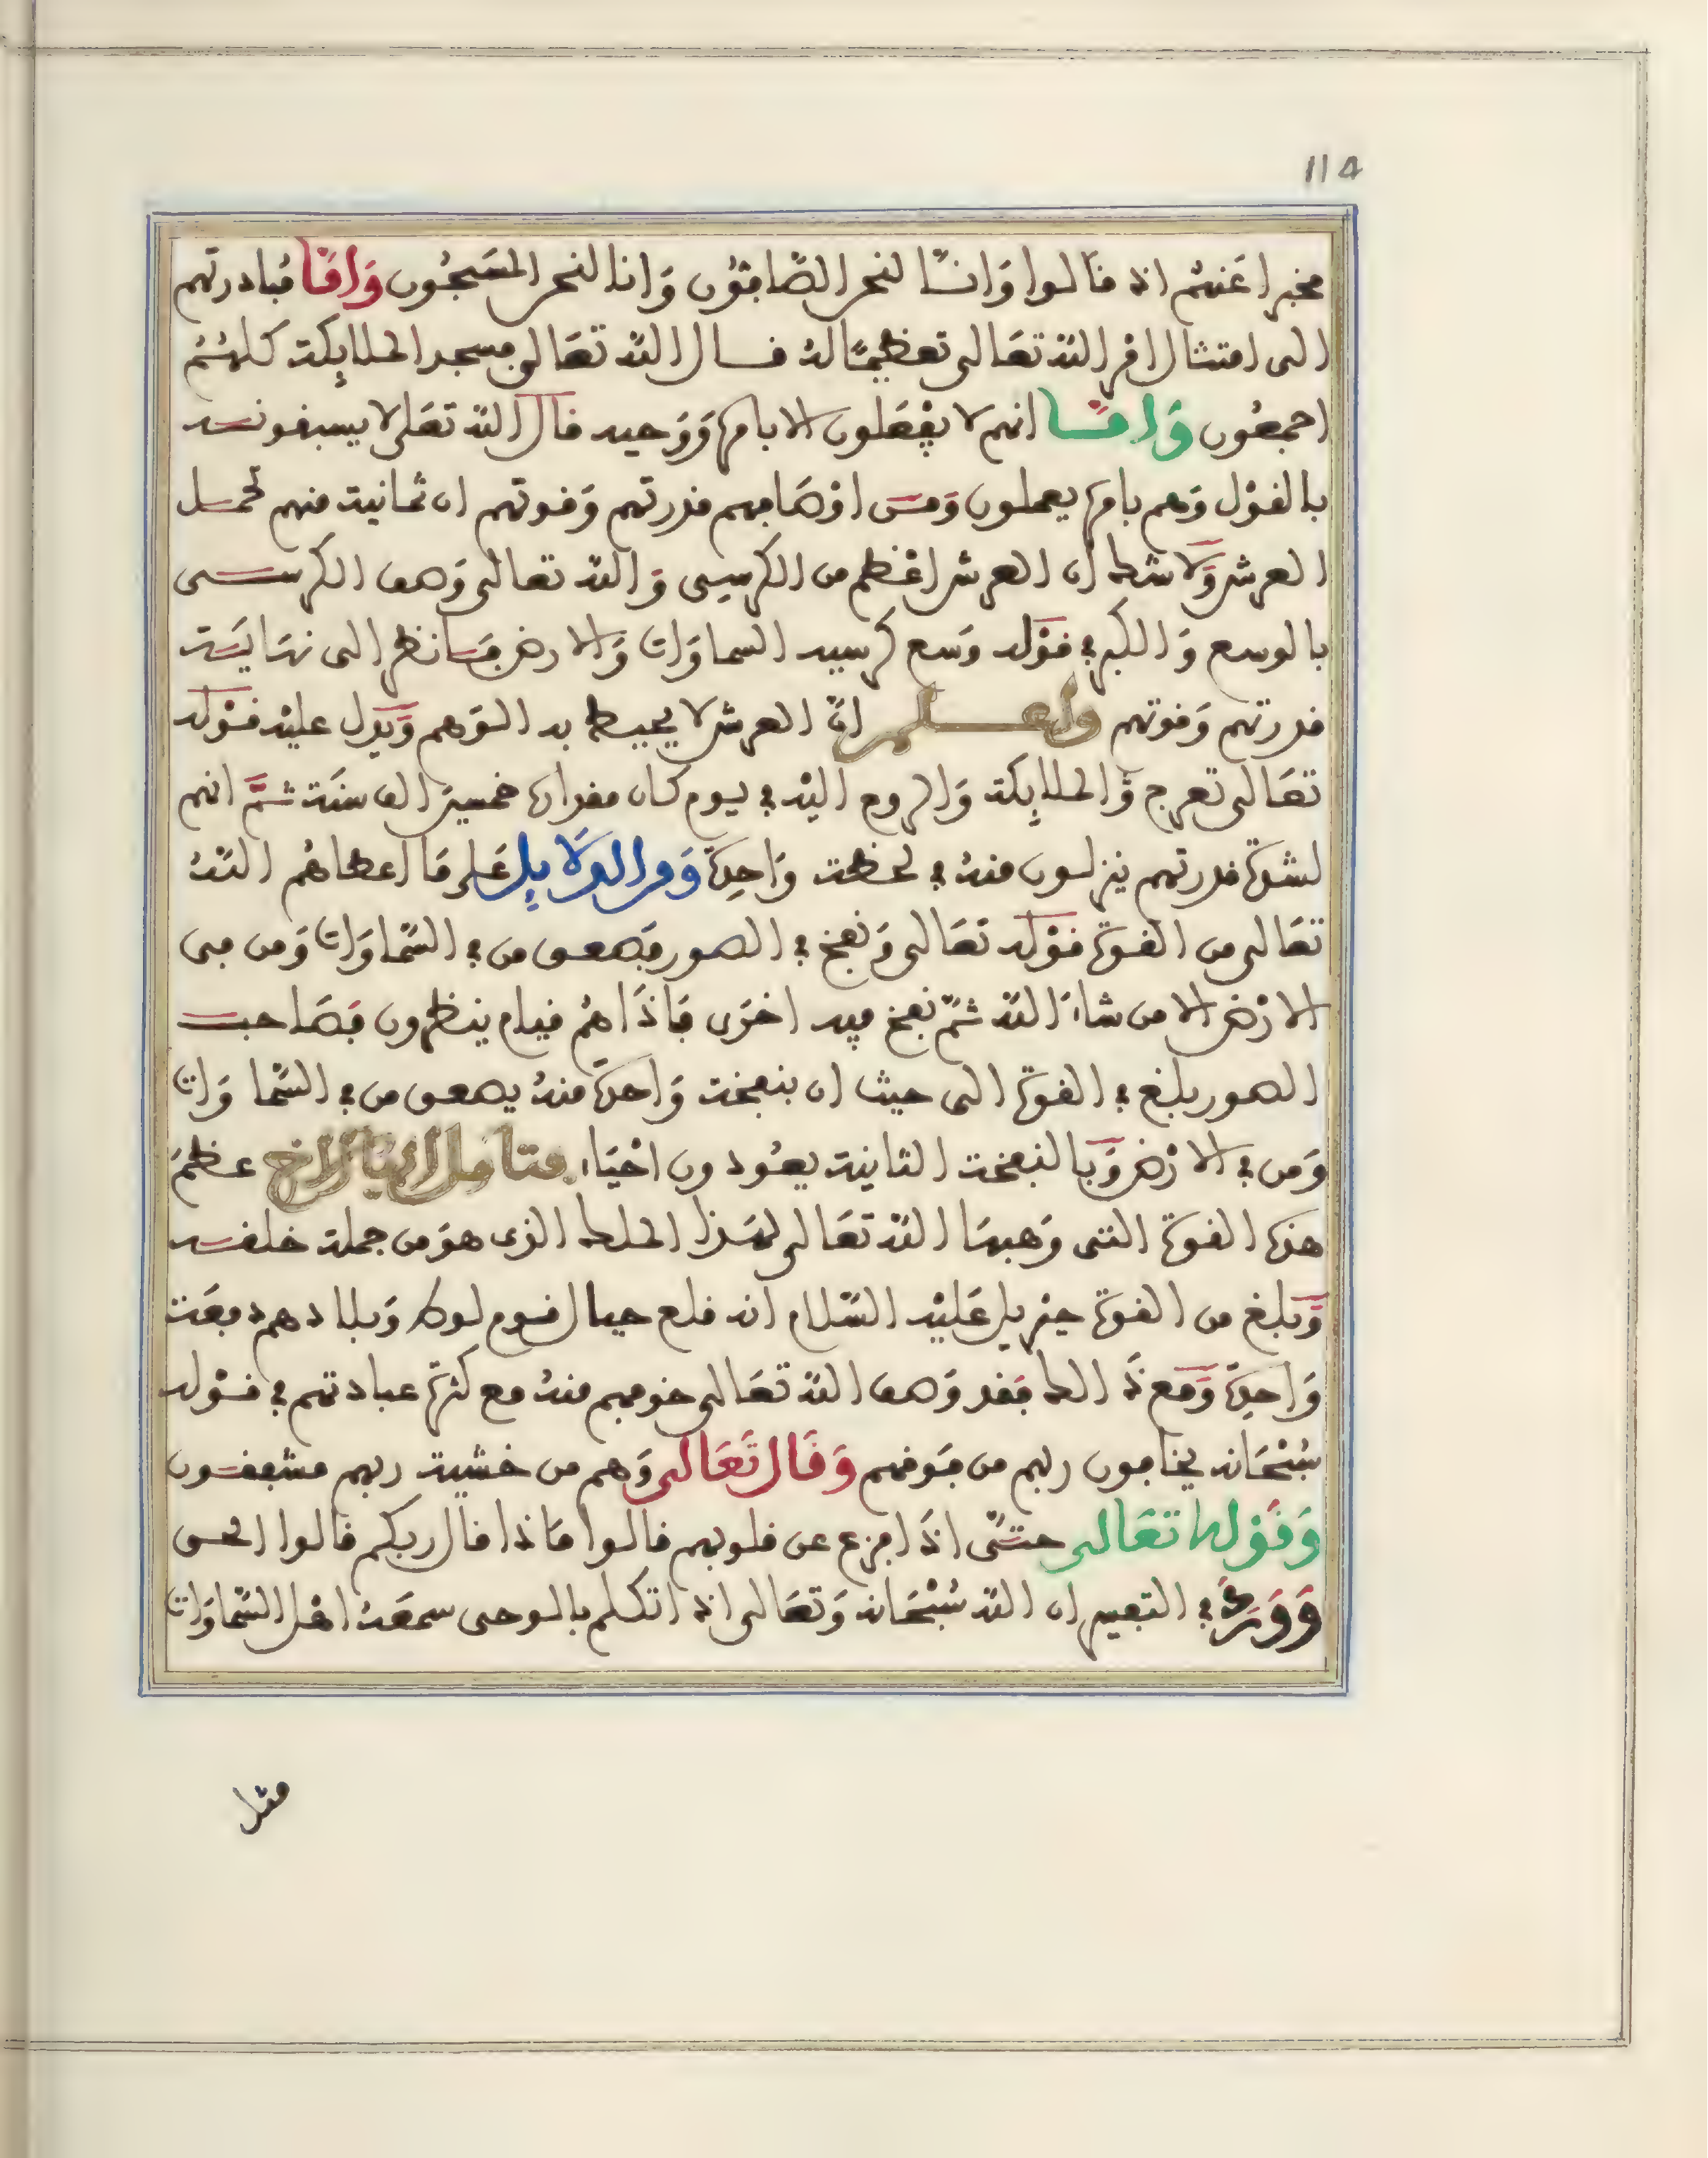 114
مخبرا عنهم اذ قالوا وانا لنحن الصافون وانا لنحن المسبحون واما مبادرتهم
الى امتثال امر الله تعالى تعظيما له فقال الله تعالى فسجد الملايكة كلهم
اجمعون واما انهم لا يفعلون الا بامره ووحيه قال الله تعلى لا يسبقونه
بالقول وهم بامره يعملون ومن اوصافهم قدرتهم وقوتهم ان ثمانية منهم تحمل
العرش ولا شك ان العرش اعظم من الكرسي والله تعالى وصف الكرسي
بالوسع والكبر في قوله وسع كرسيه السماوات والارض فانظر الى نهاية
قدرتهم وقوتهم واعلم ان العرش لا يحيط به الوهم ويدل عليه قوله
تعالى تعرج الملايكة والروح اليه في يوم كان مقداره خمسين الف سنة ثم انهم
لشدة قدرتهم ينزلون منه في لحظة واحدة ومن الدلايل على ما اعطاهم الله
تعالى من القوة قوله تعالى ونفخ في الصور فصعق من في السماوات ومن في
الارض الا من شاء الله ثم نفخ فيه اخرى فاذا هم قيام ينظرون فصاحب
الصور بلغ في القوة الى حيث ان بنفخة واحدة منه يصعق من في السماوات
ومن في الارض وبالنفخة الثانية يعودون احياء فتامل ايها الاخ عظم
هذه القوة التي وهبها الله تعالى لهذا الملك الذي هو من جملة خلقه
وبلغ من القوة جبريل عليه السلام انه قلع جبال قوم لوط وبلادهم دفعة
واحدة ومع ذالك فقد وصف الله تعالى خوفهم منه مع كثرة عبادتهم في قوله
سبحانه يخافون ربهم من فوقهم وقال تعالى وهم من خشية ربهم مشفقون
وقوله تعالى حتى اذا فزع عن قلوبهم قالوا ماذا قال ربكم قالوا الحق
وورد في التفسير ان الله سبحانه وتعالى اذا تكلم بالوحي سمعه اهل السماوات
مثل